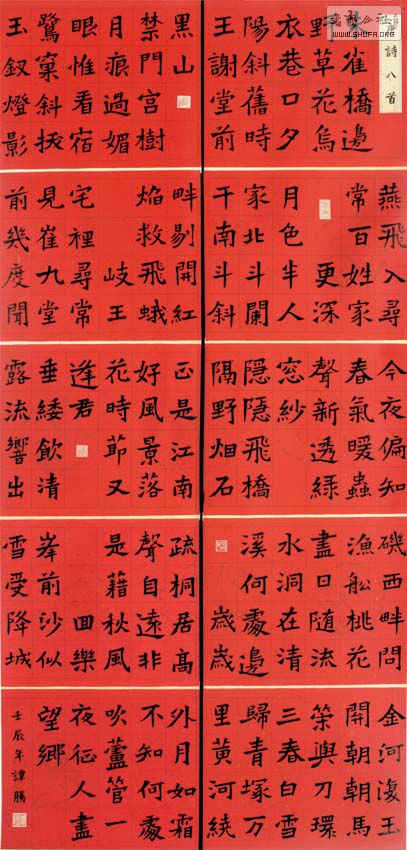 唐詩八首
雀橋邊
野草花烏
衣巷口夕
陽斜舊時
王謝堂前
燕飛入尋
常百姓家
更深
月色半人
家北斗闌
干南斗斜
今夜偏知
春氣暖蟲
聲新透綠
窓紗
隱隱飛橋
隔野烟石
磯西畔問
漁船桃花
盡日随流
水洞在清
溪何處邊
歲歲
金河復玉
關朝朝馬
策與刀環
三春白雪
歸青塚万
里黃河繞
黑山
禁門宮樹
月痕過媚
眼惟看宿
鷺窠斜拔
玉釵燈影
畔剔開紅
焰救飛蛾
岐王
宅裡尋常
見崔九堂
前幾度聞
正是江南
好風景落
花時節又
逢君
垂緌飲清
露流響出
疏桐居高
聲自遠非
是籍秋風
回樂
峯前沙似
雪受降城
外月如霜
不知何處
吹蘆管一
夜征人盡
望鄉
壬辰年譚勝
WWW.SHUFA.ORG